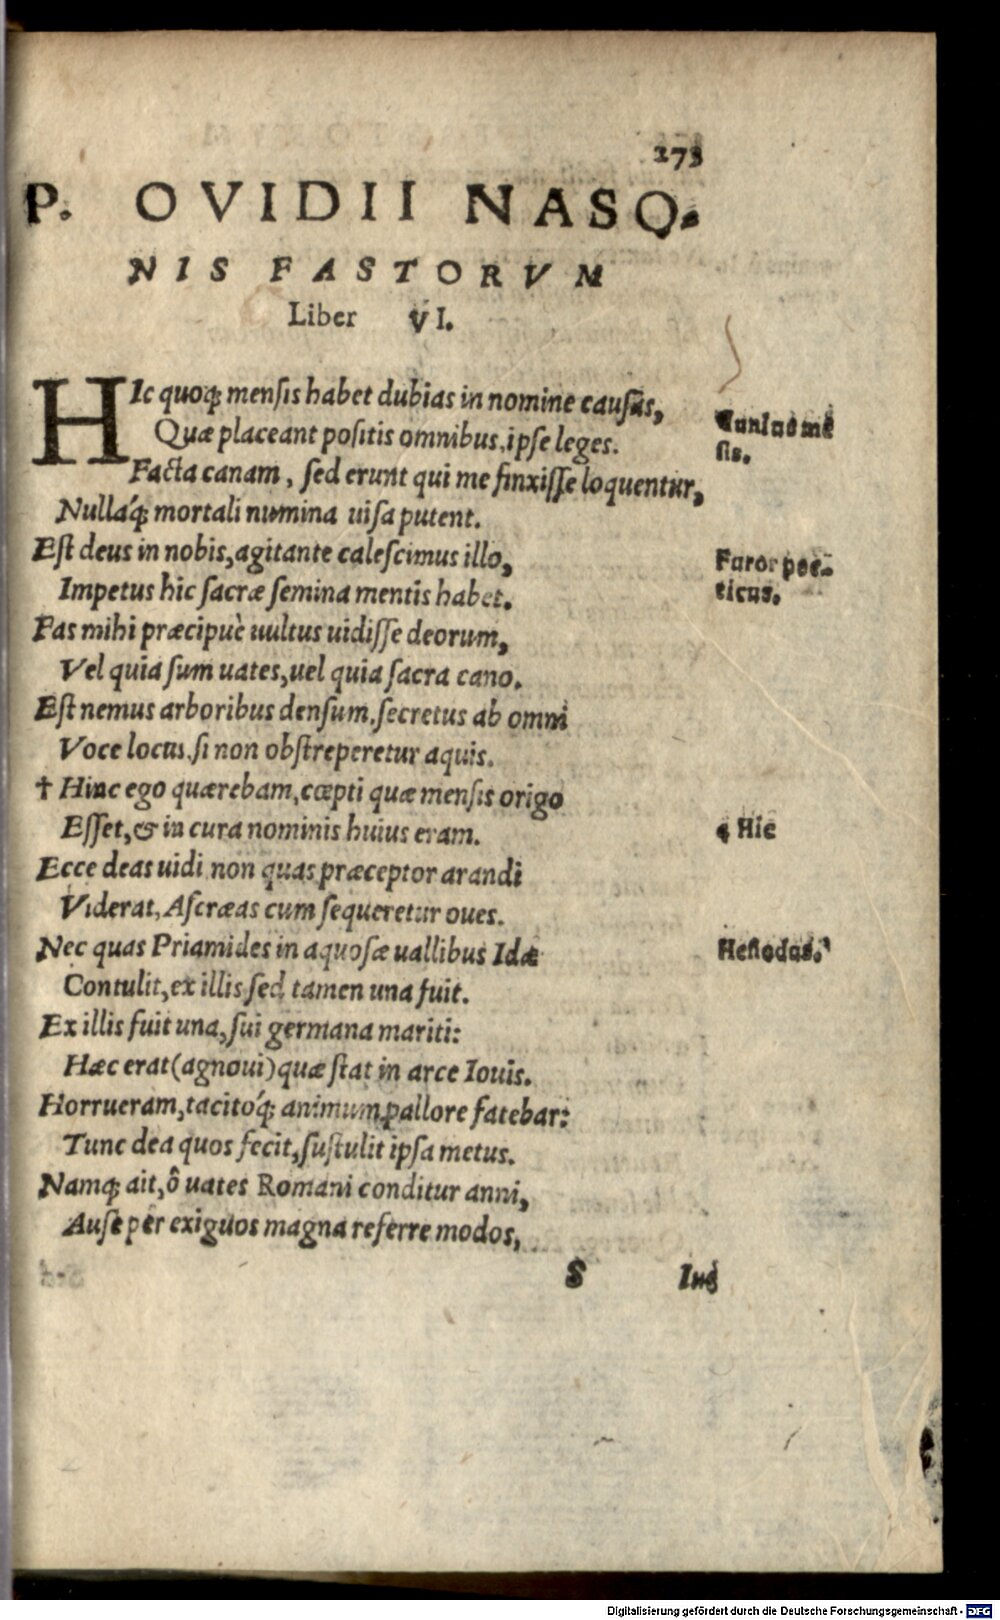 273
P. OVIDII NASO-
NIS FASTORVM
Liber VI.
HIc quoq; mensis habet dubias in nomine causas,
Quæ placeant positis omnibus, ipse leges.
Facta canam, sed erunt qui me finxisse loquentur,
Nullaq́; mortali numina uisa putent.
Est deus in nobis, agitante calescimus illo,
Impetus hic sacræ semina mentis habet.
Fas mihi præcipuè uultus uidisse deorum,
Vel quia sum uates, uel quia sacra cano.
Est nemus arboribus densum, secretus ab omni
Voce locus, si non obstreperetur aquis.
† Hinc ego quærebam, cœpti quæ mensis origo
Esset, & in cura nominis huius eram.
Ecce deas uidi, non quas præceptor arandi
Viderat, Ascræas cum sequeretur oues.
Nec quas Priamides in aquosæ uallibus Idæ
Contulit, ex illis sed tamen una fuit.
Ex illis fuit una, sui germana mariti:
Hæc erat (agnoui) quæ stat in arce Iouis.
Horrueram, tacitoq́; animum pallore fatebar:
Tunc dea quos fecit, sustulit ipsa metus.
Namq; ait, ô uates Romani conditur anni,
Ause per exiguos magna referre modos,
S Ius
Iunius mē
sis.
Furor poe-
ticus.
Hic
Hesiodus.
Digitalisierung gefördert durch die Deutsche Forschungsgemeinschaft - DFG